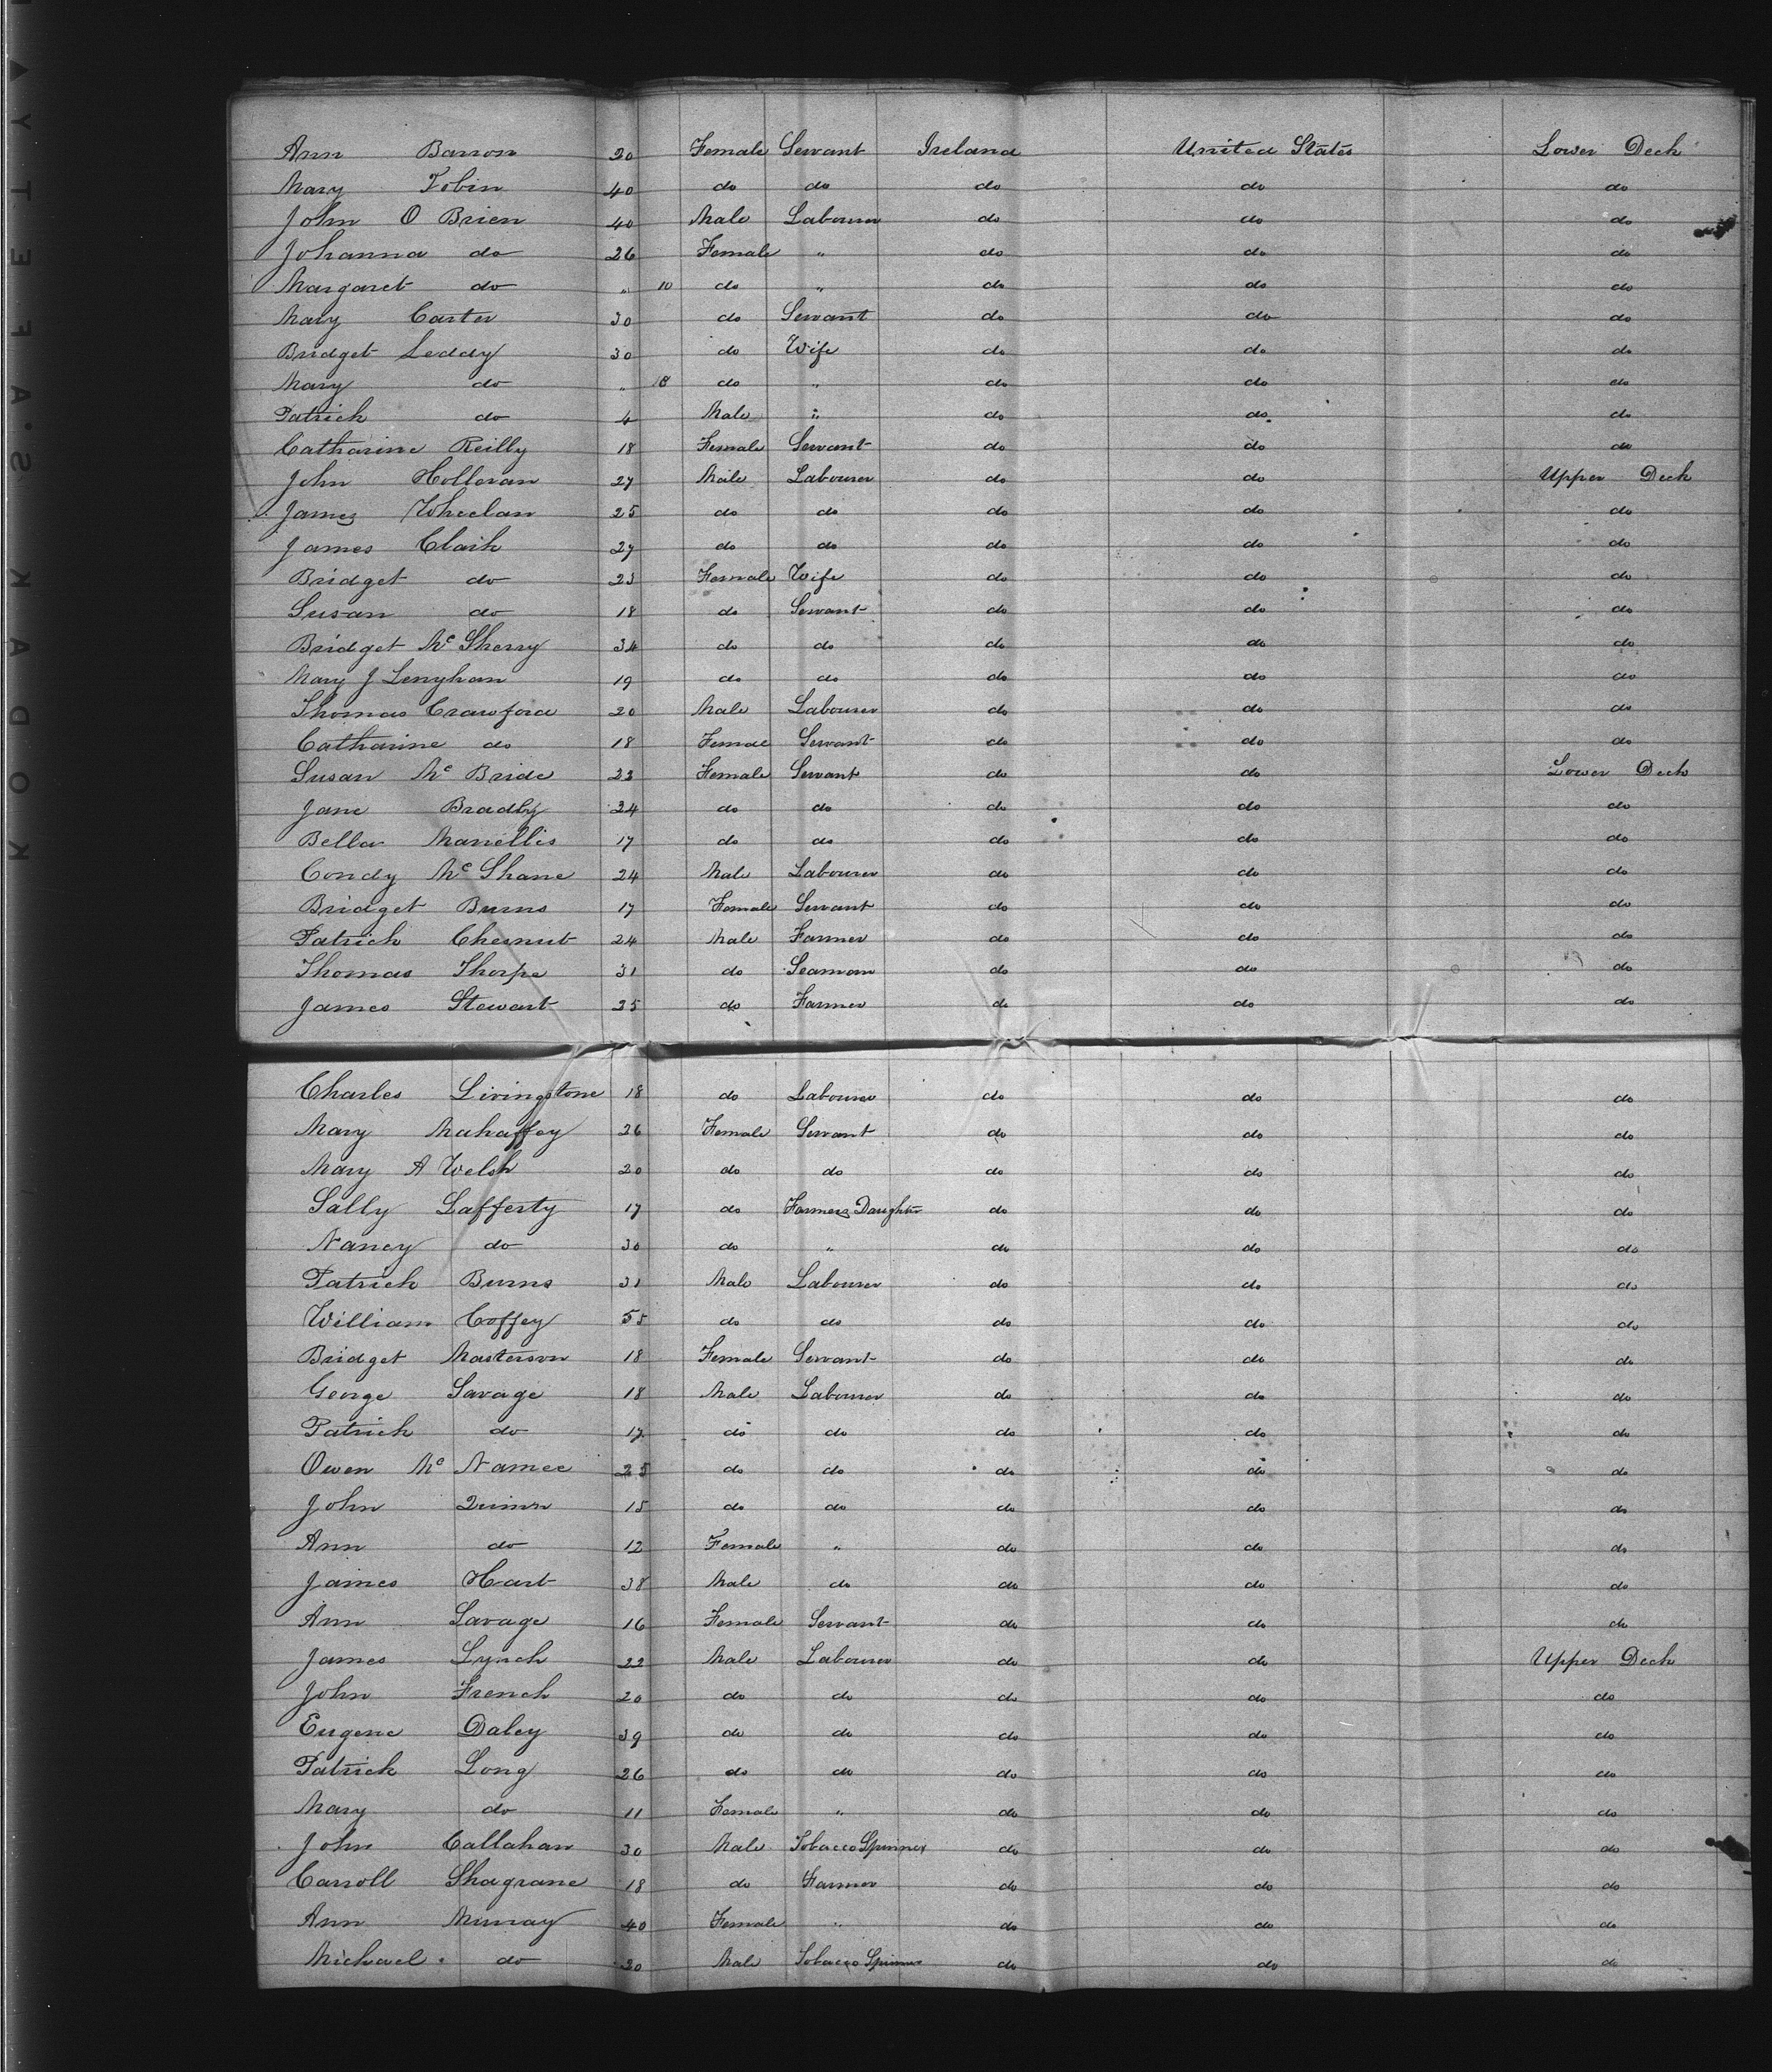 Ann Barron 20 Female Servant Ireland United States Lower Deck
Mary Tobin 40 do do do do do
John O Brien 40 Male Labourer do do do
Johanna do 26 Female " do do do
Margaret do " 10 do " do do do
Mary Carter 30 do Servant do do do
Bridget Leddy 30 do Wife do do do
Mary do " 18 do " do do do
Patrick do 4 Male " do do do
Catharine Reilly 18 Female Servant do do do
John Holloran 27 Male Labourer do do Upper Deck
James Wheelan 25 do do do do do
James Clark 27 do do do do do
Bridget do 23 Female Wife do do do
Susan do 18 do Servant do do do
Bridget Mc Sherry 34 do do do do do
Mary J Lenyhan 19 do do do do do
Thomas Crawford 20 Male Labourer do do do
Catharine do 18 Femae Servant do do do
Susan Mc Bride 23 Female Servant do do Lower Deck
Jane Bradly 24 do do do do do
Bella Manellis 17 do do do do do
Condy Mc Shane 24 Male Labourer do do do
Bridget Burns 17 Female Servant do do do
Patrick Chesnut 24 Male Farmer do do do
Thomas Thorpe 31 do Seaman do do do
James Stewart 25 do Farmer do do do
Charles Livingstone 18 do Labourer do do do
Mary Mahaffey 26 Female Servant do do do
Mary A Welsh 20 do do do do do
Sally Lafferty 17 do Farmers Daughter do do do
Nancy do 30 do " do do do
Patrick Burns 31 Male Labourer do do do
William Coffey 55 do do do do do
Bridget Masterson 18 Female Servant do do do
George Savage 18 Male Labourer do do do
Patrick do 17 do do do do do
Owen Mc Namee 25 do do do do do
John Quinn 15 do do do do do
Ann do 12 Female " do do do
James Hart 38 Male do do do do
Ann Savage 16 Female Servant do do do
James Lynch 22 Male Labourer do do Upper Deck
John French 20 do do do do do
Eugene Daley 39 do do do do do
Patrick Long 26 do do do do do
Mary do 11 Female " do do do
John Callahan 30 Male Tobacco Spinner do do do
Carroll Shagrane 18 do Farmer do do do
Ann Murray 40 Female " do do do
Michael do 20 Male Tobacco Spinner do do do
KODAK SAFETY